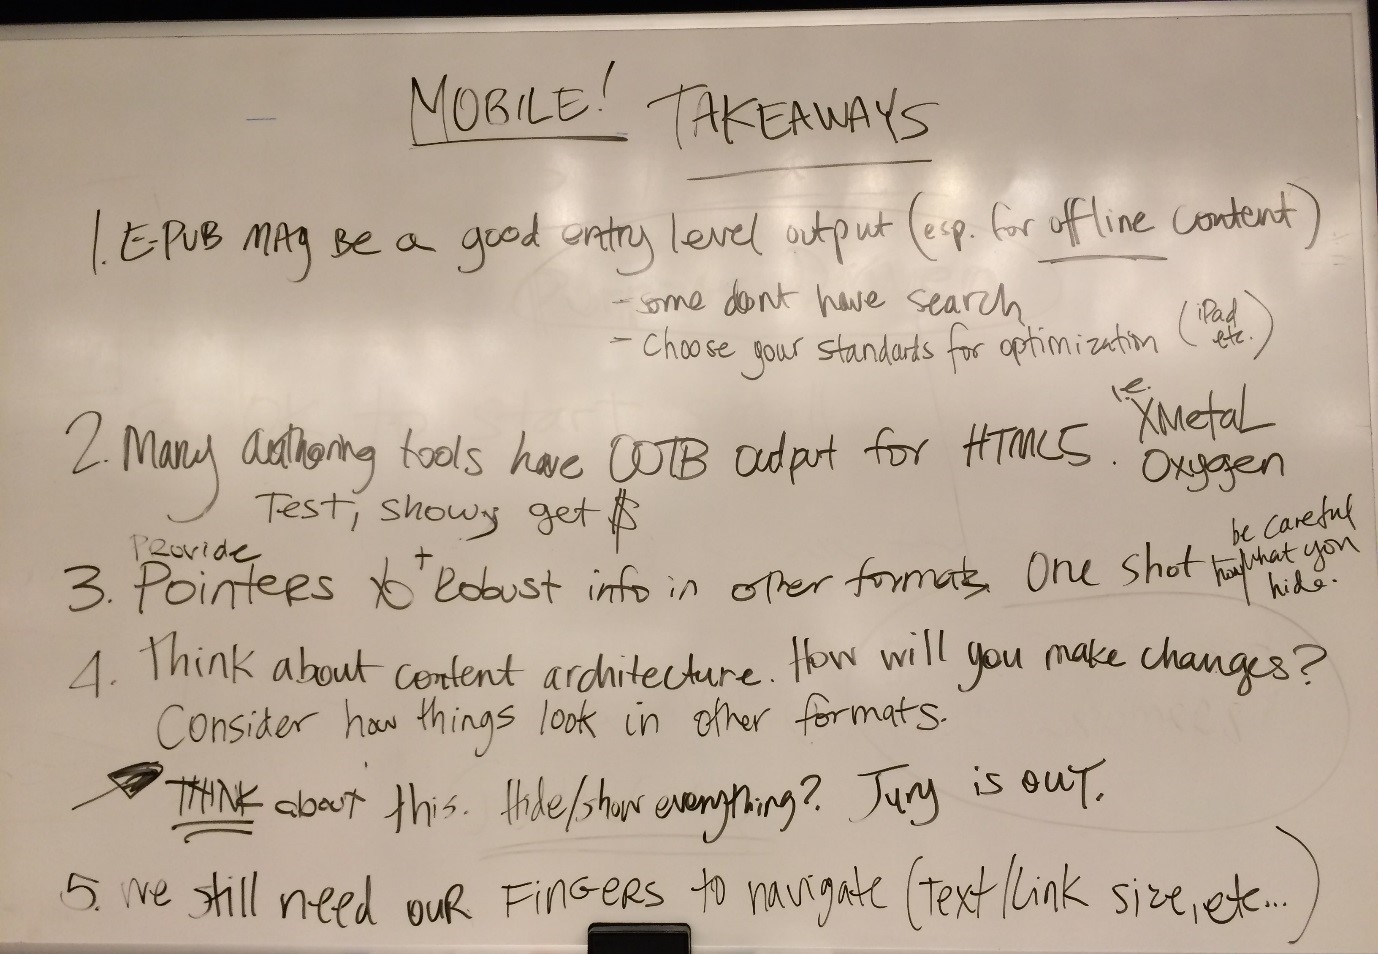 MOBILE! TAKEAWAYS
1. E-PUB MAy BE a good entry level output (esp. for offline content)
- some dont have search
- Choose your standards for optimization (iPad etc.)
2. Many authoring tools have OOTB output for HTML5. i.e. XMetaL Oxygen
Test, show, get $
Provide
3. Pointers to + Robust info in other formats. One shot
be careful how/what you hide.
4. Think about content architecture. How will you make changes?
Consider how things look in other formats.
THINK about this. Hide/show everything? Jury is out.
5. We still need our Fingers to navigate (text/link size, etc...)